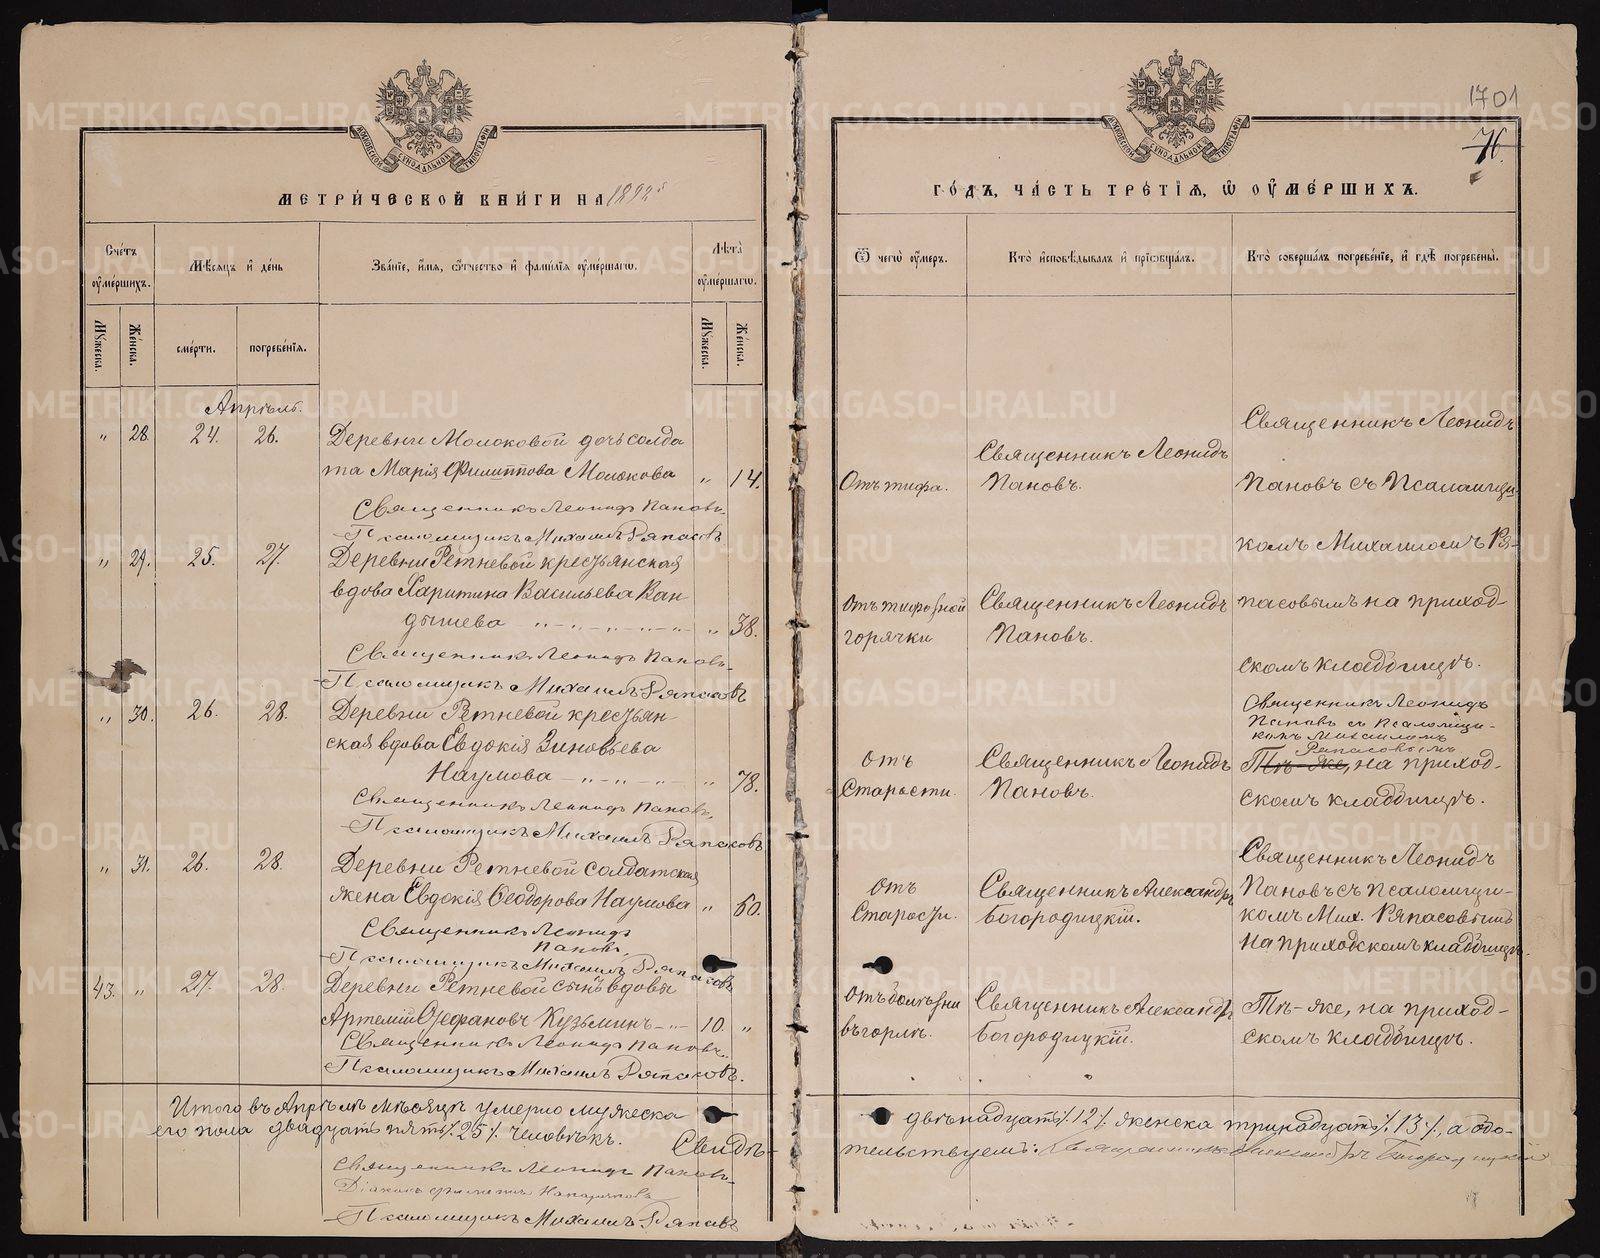 МЕТРИЧЕСКОЙ КНИГИ НА 1892й
Счетъ оумершихъ.
Мѣсяцъ и день
Званіе, имя, отчество и фамилія оумершагω.
Лѣта оумершагω.
Мꙋжеска.
Женска.
смерти.
погребенія.
Мꙋжеска.
Женска.
Апрѣль.
„ 28. 24. 26. Деревни Молоковой дочь солда
та Марія Филиппова Молокова „ 14.
Священникъ Леонидъ Пановъ.
Псаломщикъ Михаилъ Ряпасовъ
„ 29. 25. 27. Деревни Ретневой крестьянская
вдова Харитина Васильева Ван
дышева „ 38.
Священникъ Леонидъ Пановъ.
Псаломщикъ Михаилъ Ряпасовъ
„ 30. 26. 28. Деревни Ретневой крестьян
ская вдова Евдокія Зиновьева
Наумова „ 78.
Священникъ Леонидъ Пановъ.
Псаломщикъ Михаилъ Ряпасовъ
„ 31. 26. 28. Деревни Ретневой солдатская
жена Евдокія Ѳеодорова Наумова „ 60.
Священникъ Леонидъ
Пановъ.
Псаломщикъ Михаилъ Ряпасовъ
43. „ 27. 28. Деревни Ретневой сынъ вдовы
Артемій Стефановъ Кузьминъ 10. „
Священникъ Леонидъ Пановъ.
Псаломщикъ Михаилъ Ряпасовъ.
Итого въ Апрѣлѣ мѣсяцѣ умерло мужеска
его пола двадцать пять /25/. человѣкъ.
Свидѣ-
Священникъ Леонидъ Пановъ
Діаконъ
Псаломщикъ Михаилъ Ряпасовъ
1701
76.
ГОДЪ, ЧАСТЬ ТРЕТІЯ, Ѡ ОУМЕРШИХЪ.
Ѿ чегω оумеръ.
Кто исповѣдывалъ и пріобщалъ.
Кто совершалъ погребеніе, и гдѣ погребены.
Отъ тифа.
Священникъ Леонидъ
Пановъ.
Священникъ Леонидъ
Пановъ съ Псаломщи-
комъ Михаиломъ Ря-
пасовымъ на приход-
скомъ кладбищѣ.
Отъ тифозной
горячки
Священникъ Леонидъ
Пановъ.
Отъ
Старости.
Священникъ Леонидъ
Пановъ.
Священникъ Леонидъ
Пановъ съ Псаломщи-
комъ Михаиломъ
Ряпасовымъ
Тѣ-же, на приход-
скомъ кладбищѣ.
Отъ
Старости.
Священникъ Александръ
Богородицкій.
Священникъ Леонидъ
Пановъ съ Псаломщи-
комъ Мих. Ряпасовымъ
на приходскомъ кладбищѣ.
Отъ болѣзни
въ горлѣ.
Священникъ Александръ
Богородицкій.
Тѣ-же, на приход-
скомъ кладбищѣ.
двѣнадцать /.12/. женска тринадцать /.13/., а обо-
тельствуемъ: Священникъ Александръ Богородицкій
METRIKI.GASO-URAL.RU